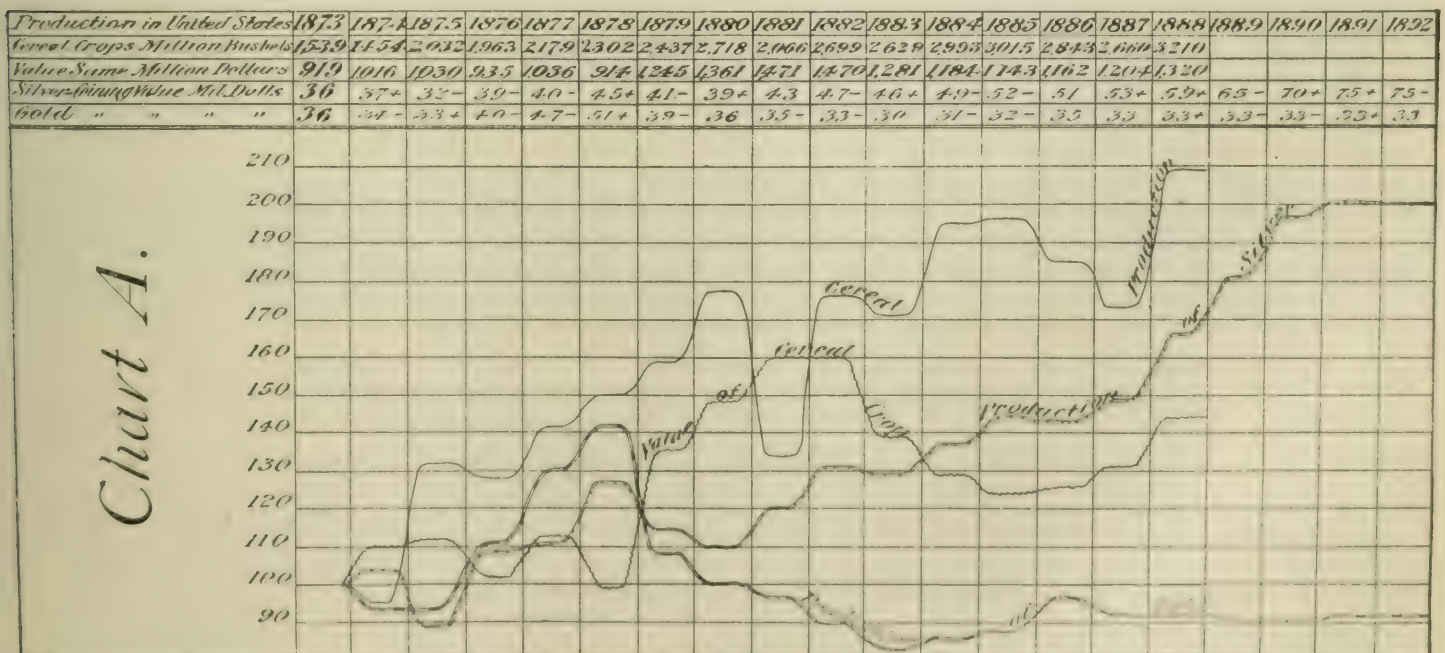 Production in United States 1873 1874 1875 1876 1877 1878 1879 1880 1881 1882 1883 1884 1885 1886 1887 1888 1889 1890 1891 1892
Cereal Crops Million Bushels 1,539 1454 2032 1,963 2179 2302 2,437 2,718 2,066 2,699 2,629 2,993 3015 2,843 2,660 3,210
Value Same Million Dollars 919 1016 1,030 935 1,036 914 1,245 1,361 1,471 1,470 1,281 1,184 1143 1,162 1,204 1,320
Silver Coining Value Mil. Dolls 36 37+ 32- 39- 40- 45+ 41- 39+ 43 47- 46+ 49- 52- 51 53+ 59+ 65- 70+ 75+ 75-
Gold " " " " 36 34- 33+ 40- 47- 51+ 39- 36 35- 33- 30 31- 32- 35 33 33+ 33- 33- 33+ 33
Chart A.
210
200
190
180
170
160
150
140
130
120
110
100
90
Cereal Production
Value of Cereal Crop
Production of Silver
of